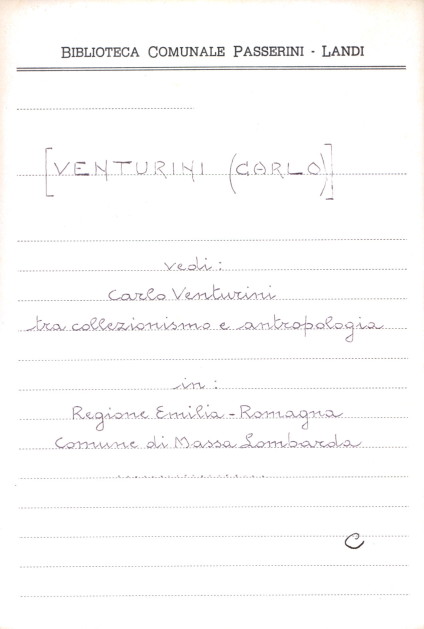 BIBLIOTECA COMUNALE PASSERINI - LANDI
[VENTURINI (CARLO)]
vedi:
Carlo Venturini
tra collezionismo e antropologia
in:
Regione Emilia-Romagna
Comune di Massa Lombarda
................
C